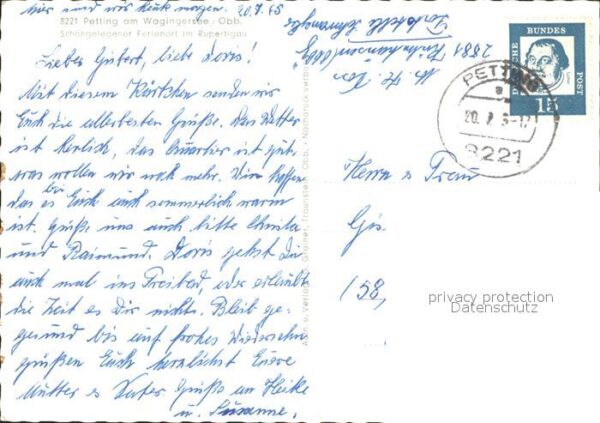 hier und wie heute morgen. 20.7.65
8221 Petting am Wagingersee Obb.
Schöngelegener Ferienort im Rupertigau
Lieber Gisbert, liebe Doris!
Mit diesem Kärtchen senden wir
Euch die allerbesten Grüße. Das Wetter
ist herlich, das Quartier ist gut,
was wollen wir noch mehr. Wir hoffen
das es bei Euch auch sommerlich warm
ist. Grüße uns auch bitte Christa
und Raimund. Doris gehst Du
auch mal ins Freibad, oder erlaubt
die Zeit es Dir nicht. Bleib ge-
gesund bis auf frohes Wiedersehn
grüßen Euch herzlichst Euere
Mutter & Vater Grüße an Heike
u. Susanne.
2881
DEUTSCHE BUNDESPOST
15
PETTING
20. 7. 6 -17
8221
Herrn & Frau
Gis.
(58,
privacy protection
Datenschutz